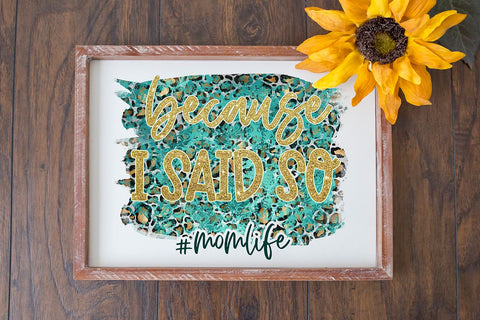 because
I SAID SO
#momlife